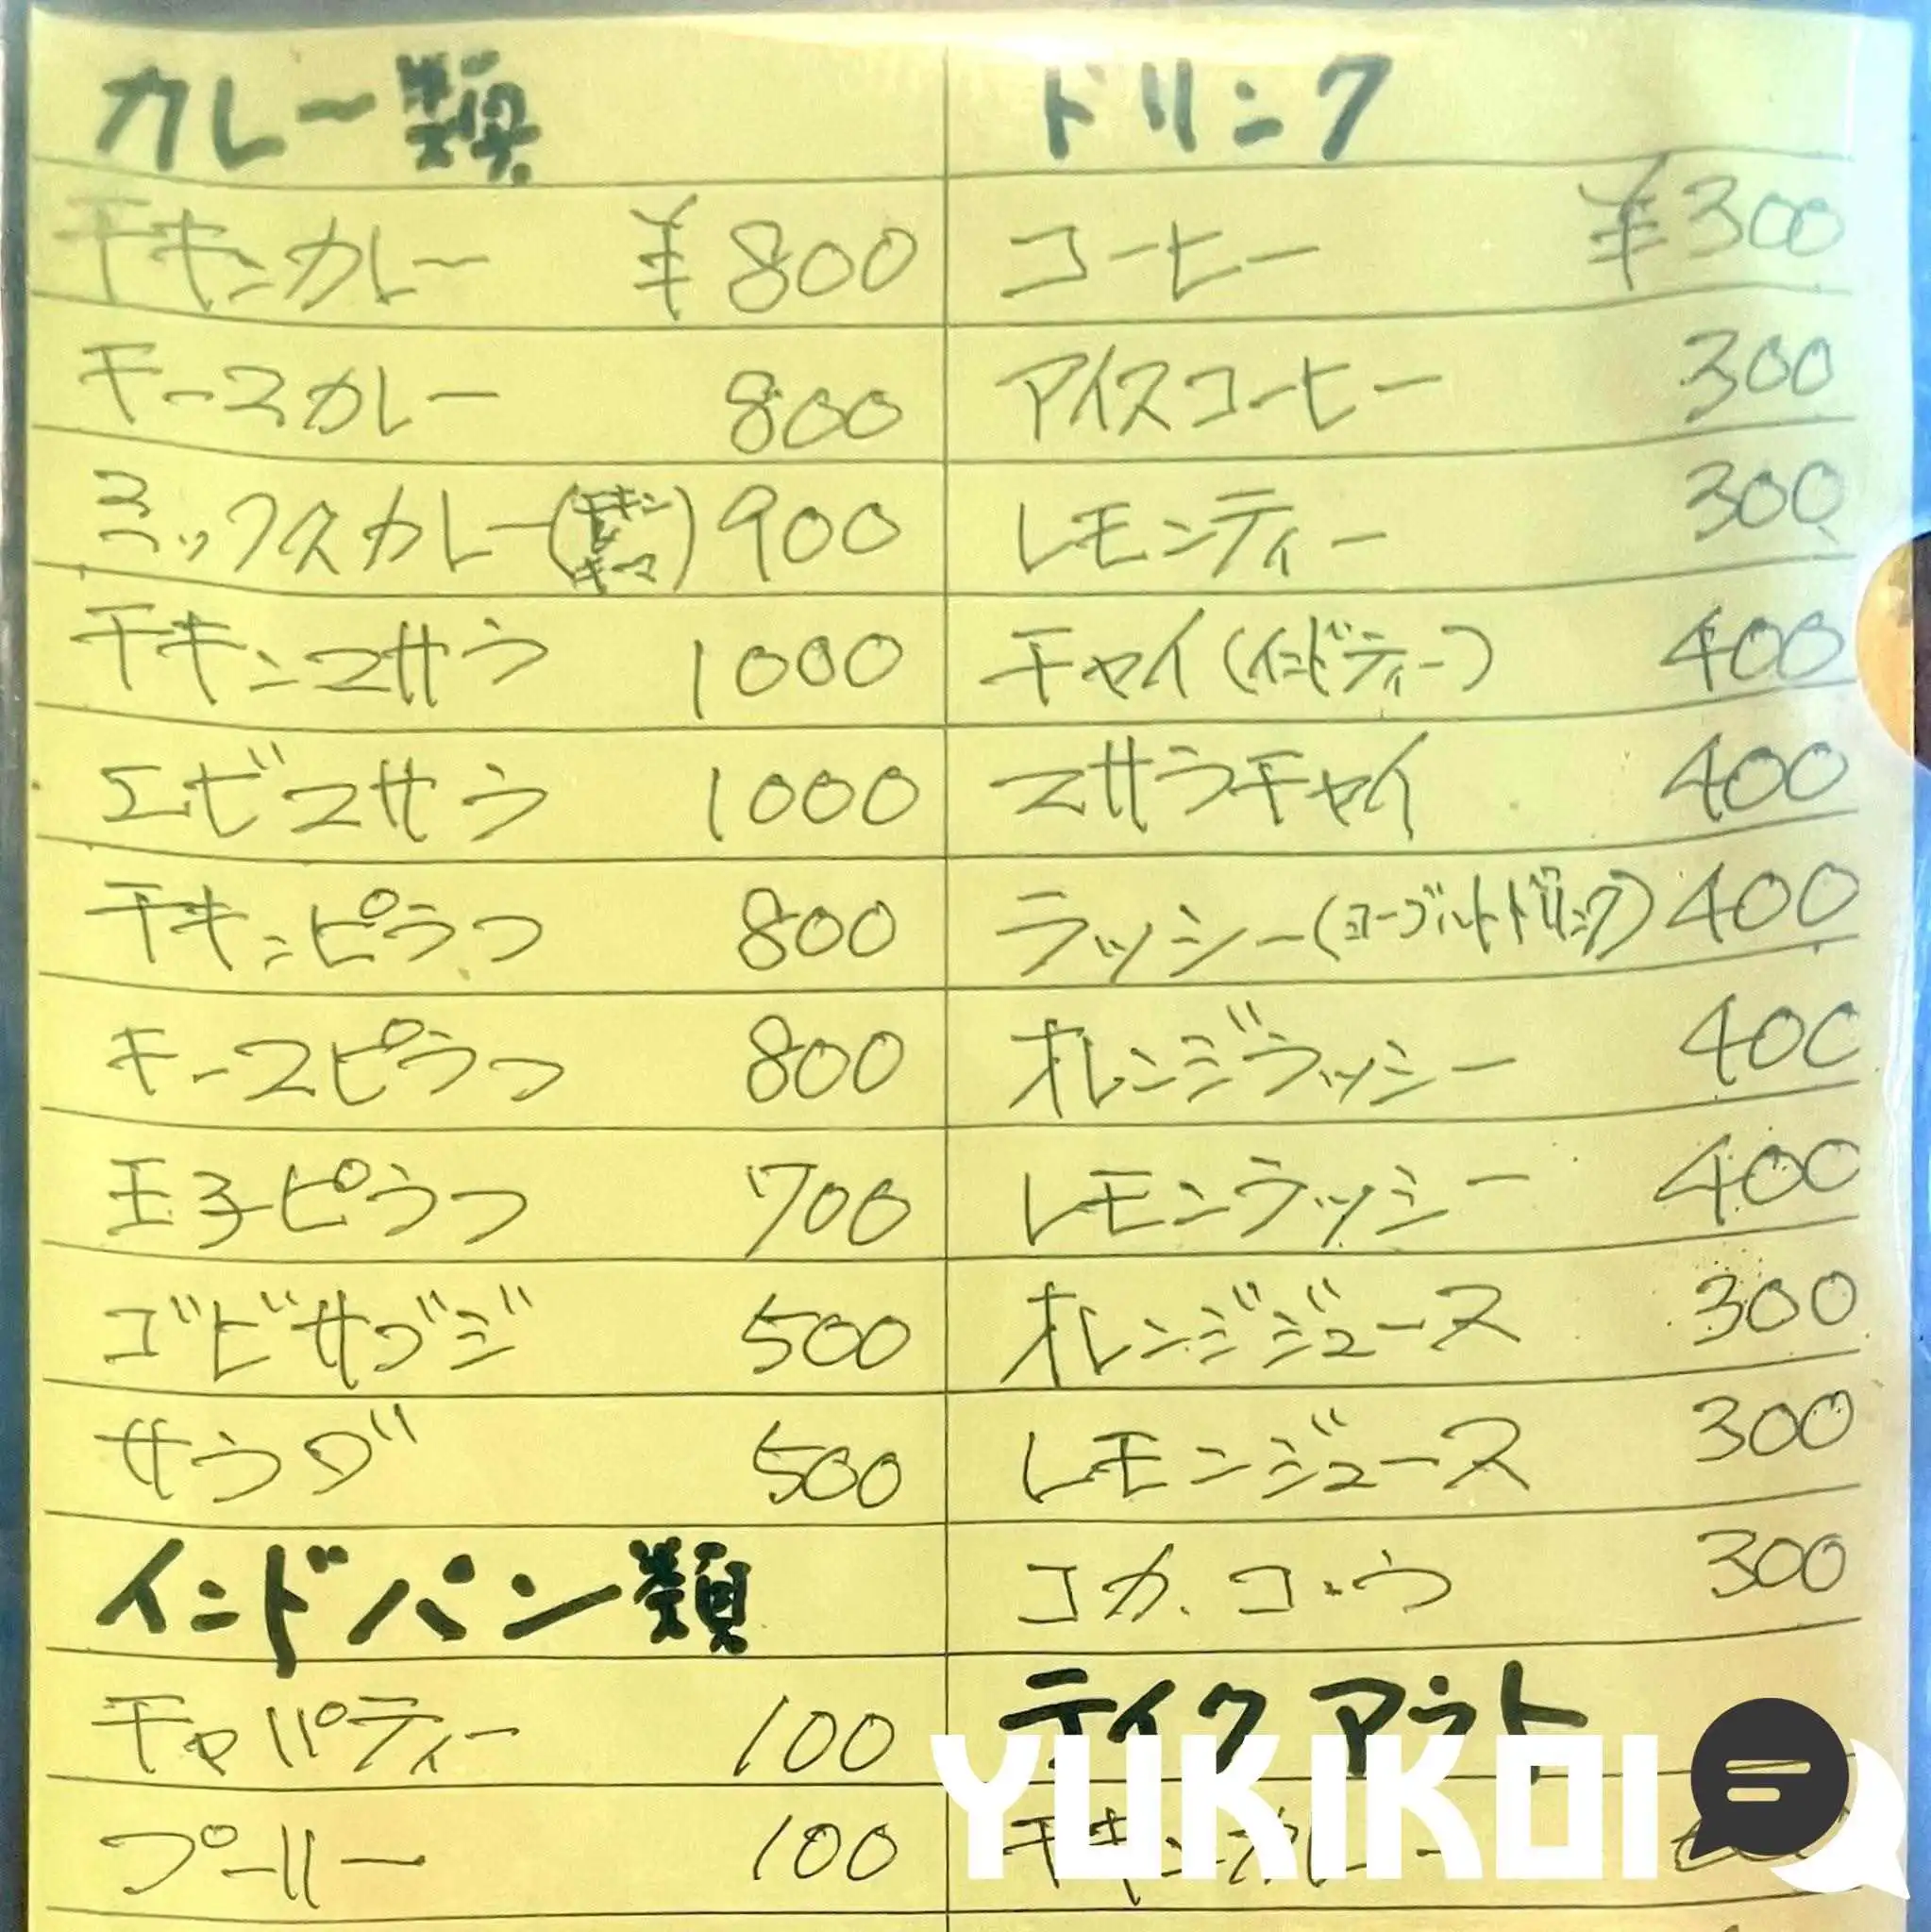 カレー類
チキンカレー ¥800
チーズカレー 800
ミックスカレー(チキンとキーマ) 900
チキンマサラ 1000
エビマサラ 1000
チキンピラフ 800
チーズピラフ 800
玉子ピラフ 700
ゴビサブジ 500
サラダ 500
インドパン類
チャパティー 100
プーリー 100
ドリンク
コーヒー ¥300
アイスコーヒー 300
レモンティー 300
チャイ(インドティー) 400
マサラチャイ 400
ラッシー(ヨーグルトドリンク) 400
オレンジラッシー 400
レモンラッシー 400
オレンジジュース 300
レモンジュース 300
コカ・コーラ 300
テイクアウト
チキンカレー
YUKIKOI